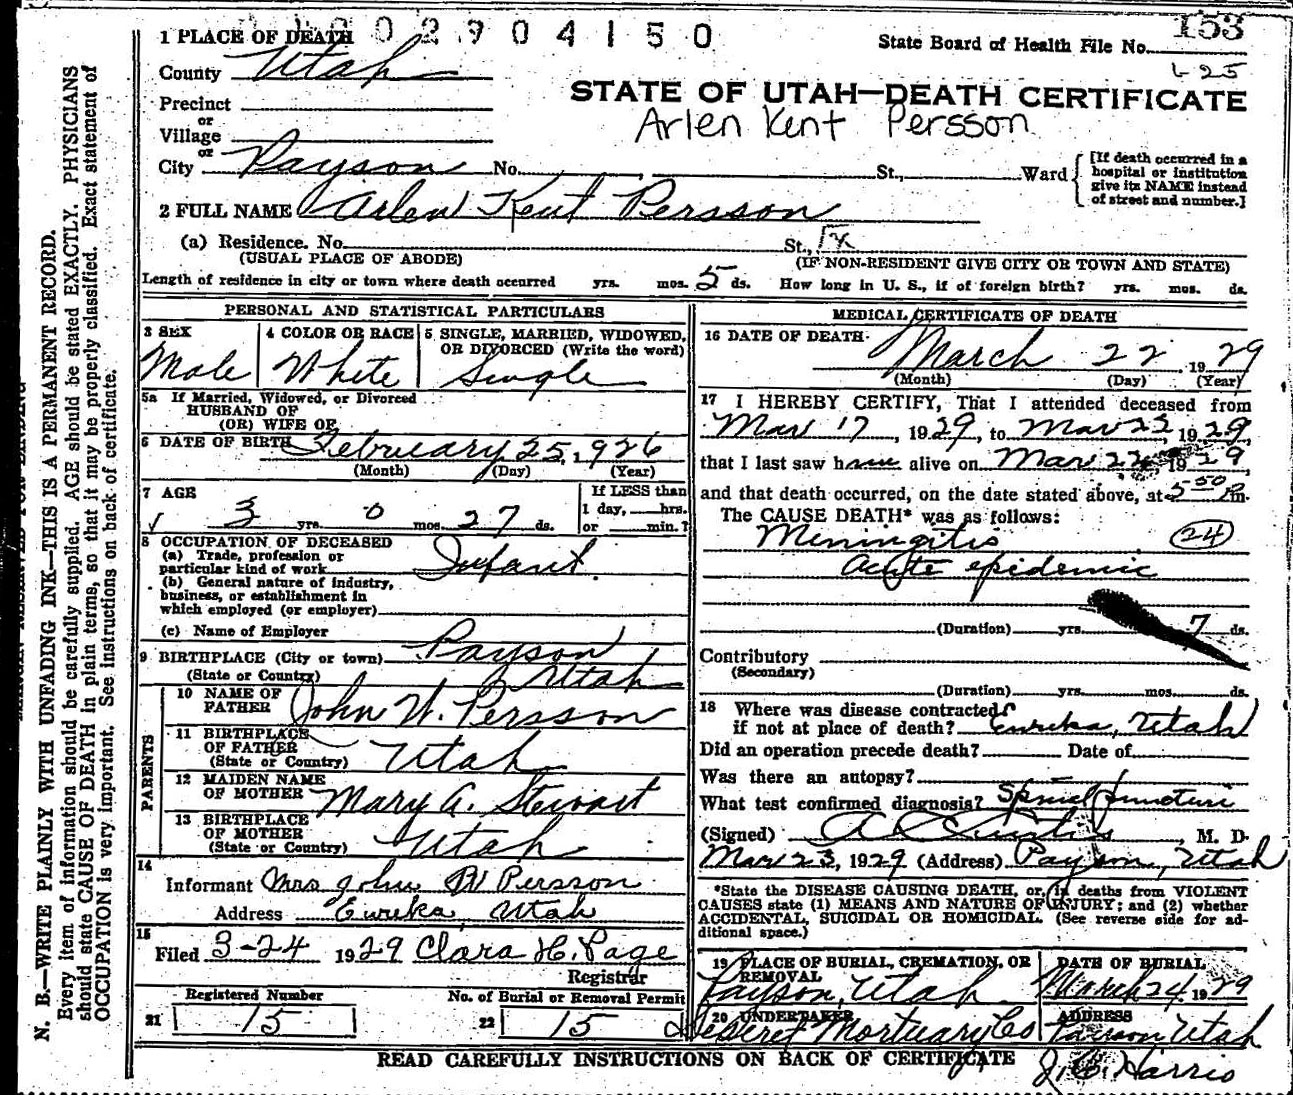 002904150
1 PLACE OF DEATH
State Board of Health File No. 153
County Utah
STATE OF UTAH—DEATH CERTIFICATE
Precinct
Arlen Kent Persson
or
Village
or
City Payson No. St., Ward {[If death occurred in a hospital or institution give its NAME instead of street and number.]
2 FULL NAME Arlen Kent Persson
(a) Residence. No. St.,
(USUAL PLACE OF ABODE) (IF NON-RESIDENT GIVE CITY OR TOWN AND STATE)
Length of residence in city or town where death occurred yrs. mos. 5 ds. How long in U. S., if of foreign birth? yrs. mos. ds.
PERSONAL AND STATISTICAL PARTICULARS
3 SEX Male
4 COLOR OR RACE White
5 SINGLE, MARRIED, WIDOWED, OR DIVORCED (Write the word) Single
5a If Married, Widowed, or Divorced
HUSBAND OF
(OR) WIFE OF
6 DATE OF BIRTH February 25, 1926
(Month) (Day) (Year)
7 AGE 3 yrs. 0 mos. 27 ds.
If LESS than
1 day, hrs.
or min.?
8 OCCUPATION OF DECEASED
(a) Trade, profession or
particular kind of work Infant.
(b) General nature of industry,
business, or establishment in
which employed (or employer)
(c) Name of Employer
9 BIRTHPLACE (City or town) Payson
(State or Country) Utah
PARENTS
10 NAME OF FATHER John W. Persson
11 BIRTHPLACE OF FATHER (State or Country) Utah
12 MAIDEN NAME OF MOTHER Mary A. Stewart
13 BIRTHPLACE OF MOTHER (State or Country) Utah
14
Informant Mrs John W Persson
Address Eureka, Utah
15
Filed 3-24 1929 Clara H. Page
Registrar
Registered Number
21 15
No. of Burial or Removal Permit
22 15
MEDICAL CERTIFICATE OF DEATH
16 DATE OF DEATH March 22, 1929
(Month) (Day) (Year)
17 I HEREBY CERTIFY, That I attended deceased from
Mar 17, 1929, to Mar 22, 1929,
that I last saw him alive on Mar 22, 1929,
and that death occurred, on the date stated above, at 5 50 Pm.
The CAUSE DEATH* was as follows:
Meningitis (24)
Acute epidemic
(Duration) yrs. 7 ds.
Contributory
(Secondary)
(Duration) yrs. mos. ds.
18 Where was disease contracted
if not at place of death? Eureka, Utah
Did an operation precede death? Date of
Was there an autopsy?
What test confirmed diagnosis? Spinal puncture
(Signed) A C Curtis, M. D.
Mar 23, 1929 (Address) Payson, Utah
*State the DISEASE CAUSING DEATH, or, in deaths from VIOLENT
CAUSES state (1) MEANS AND NATURE OF INJURY; and (2) whether
ACCIDENTAL, SUICIDAL OR HOMICIDAL. (See reverse side for ad-
ditional space.)
19 PLACE OF BURIAL, CREMATION, OR REMOVAL Payson, Utah
DATE OF BURIAL March 24, 1929
20 UNDERTAKER Deseret Mortuary Co
ADDRESS Payson Utah
READ CAREFULLY INSTRUCTIONS ON BACK OF CERTIFICATE
J. C. Harris
N. B.—WRITE PLAINLY WITH UNFADING INK—THIS IS A PERMANENT RECORD.
Every item of information should be carefully supplied. AGE should be stated EXACTLY. PHYSICIANS
should state CAUSE OF DEATH in plain terms, so that it may be properly classified. Exact statement of
OCCUPATION is very important. See instructions on back of certificate.